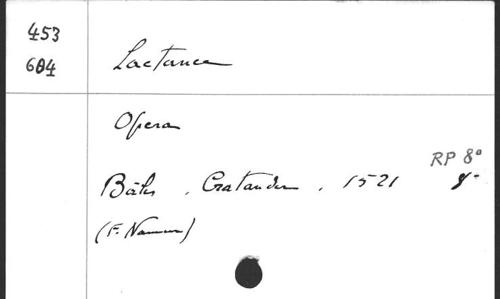 453
604
Lactance
Opera
RP 8°
Bâle, Cratander, 1521
(F. Namur)